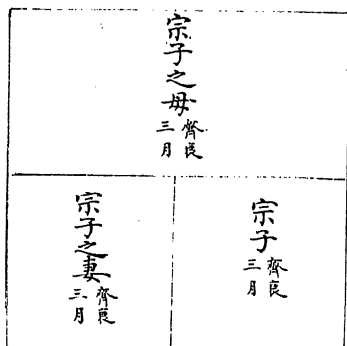 宗子之母
齊衰
三月
宗子
齊衰
三月
宗子之妻
齊衰
三月